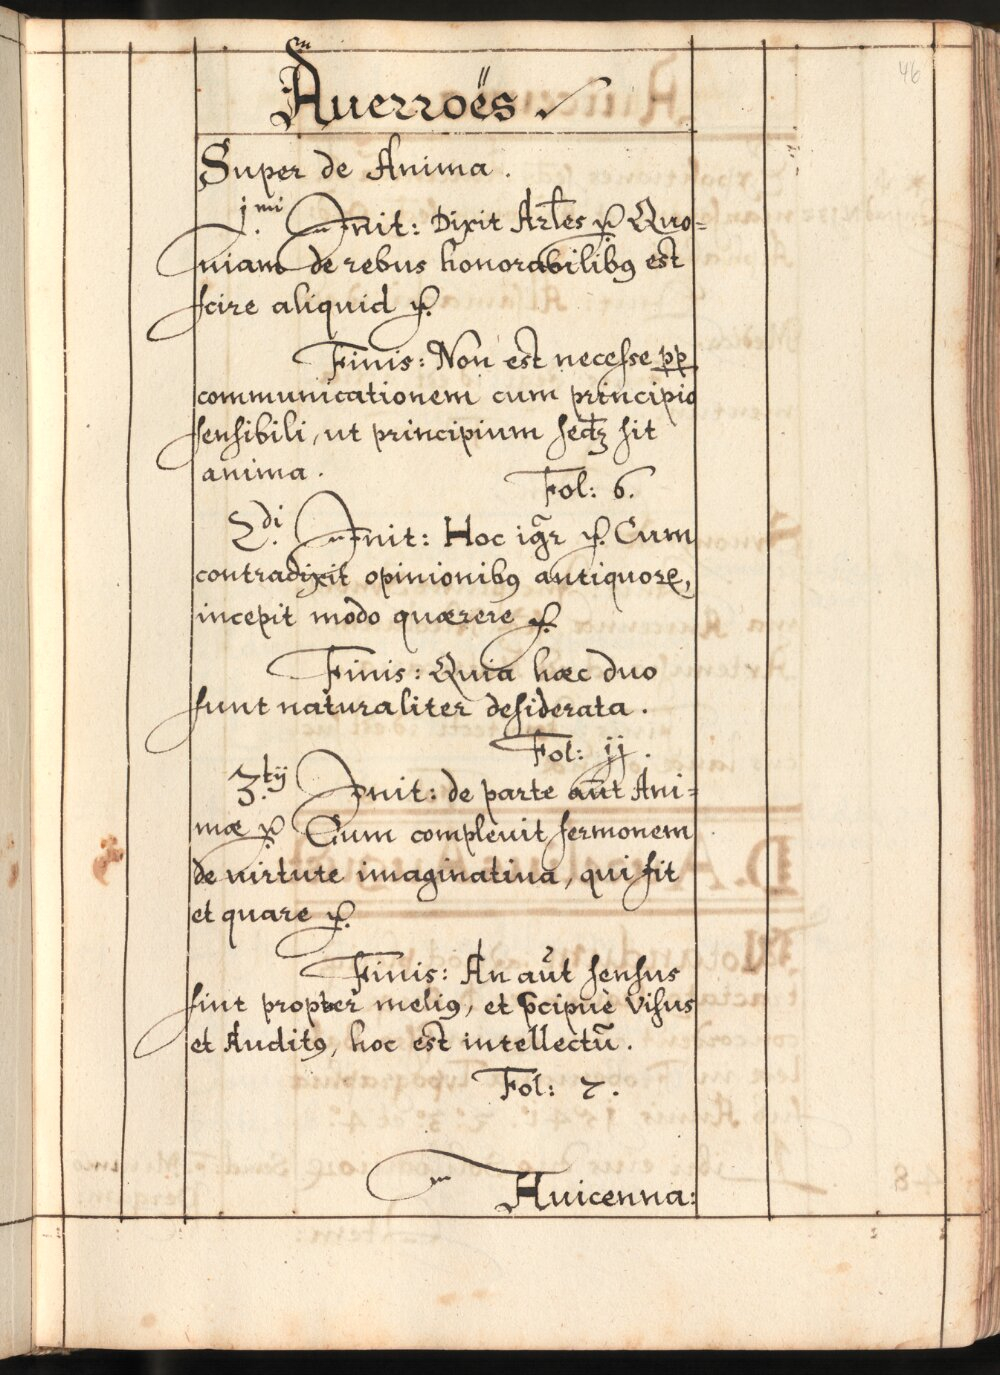 46
Auerroës
Super de Anima.
j.mi Init: Dixit Ar̃les ꝛc. Quo=
niam de rebus honorabilibꝰ est
scire aliquid ꝛc.
Finis: Non est necesse pp
communicationem cum principio
sensibili, ut principium sedꝫ sit
anima.
Fol: 6.
2.di Init: Hoc igr̃ ꝛc. Cum
contradixit opinionibꝰ antiquoꝝ,
incepit modo quærere ꝛc.
Finis: Quia hæc duo
sunt naturaliter desiderata.
Fol: jj.
3.tij Init: de parte aũt Ani=
mæ ꝛc Cum compleuit sermonem
de uirtute imaginatiua, qui fit
et quare ꝛc.
Finis: An aũt sensus
sint propter meliꝰ, et p̃cipuè Visus
et Auditꝰ, hoc est intellectũ.
Fol: 7.
Auicenna: